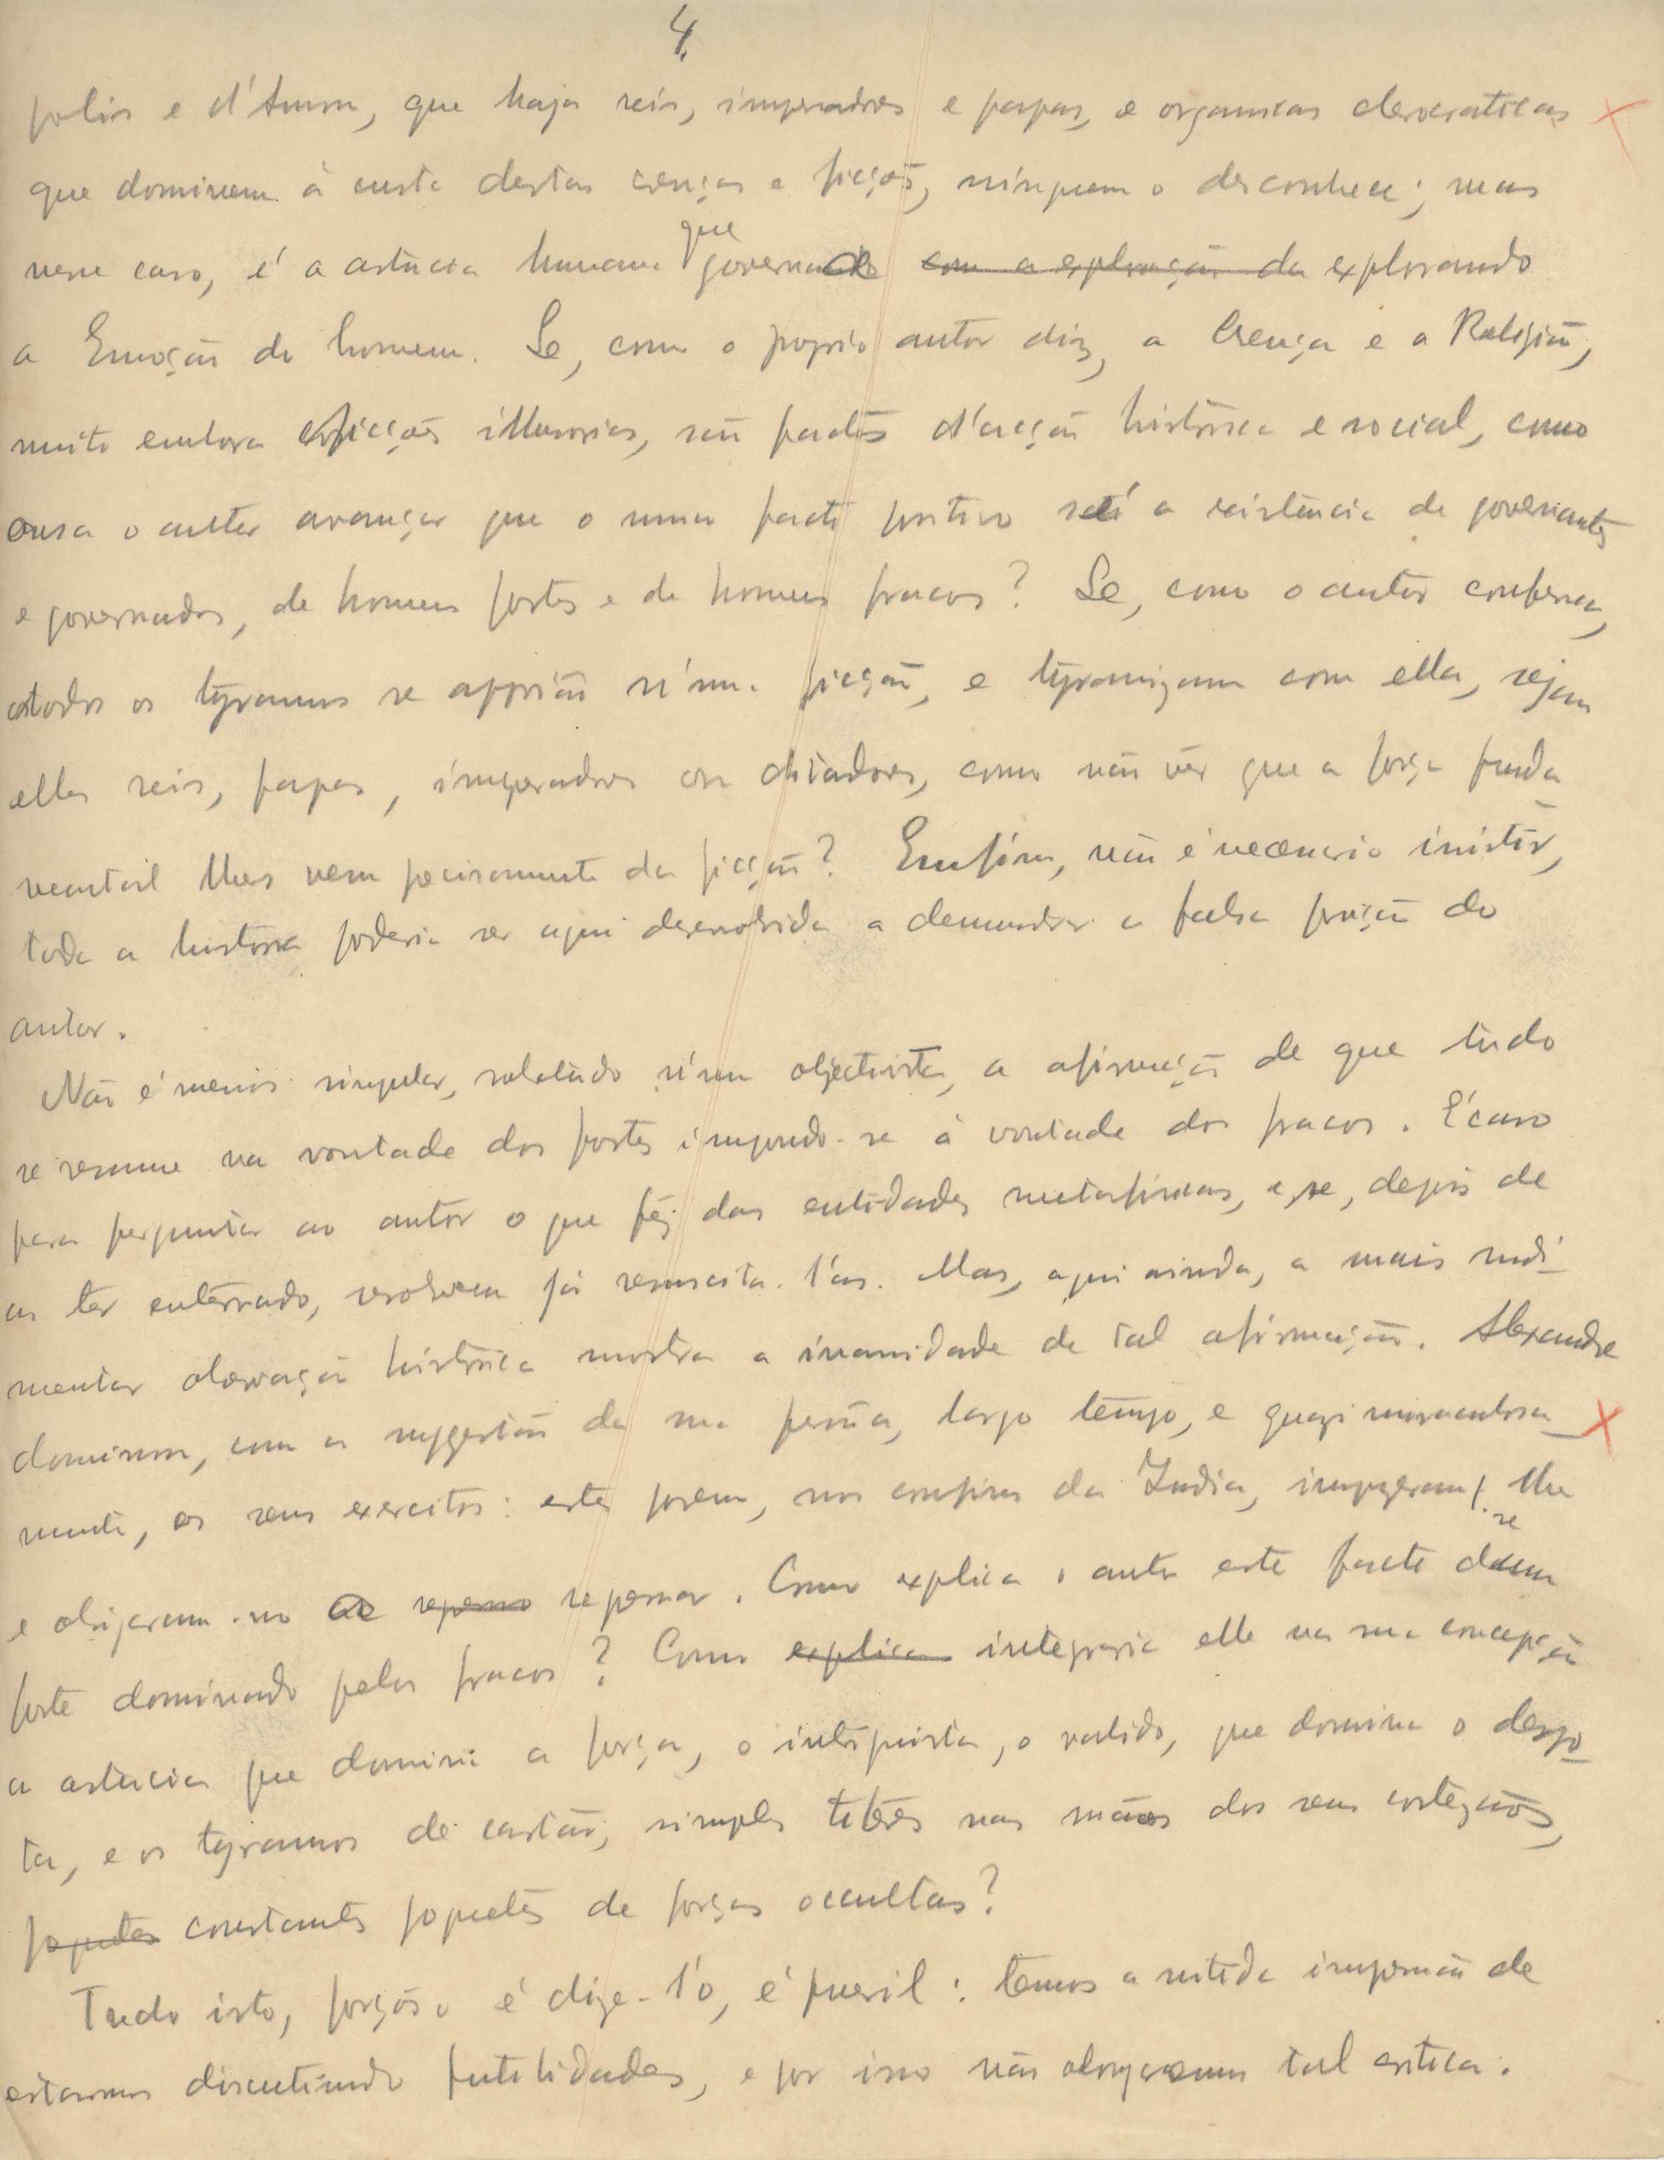 4.
polis e d'Amon, que haja reis, imperadores e papas, e
que dominem à custa destas crenças e ficções, ninguem o desconhece; mas
nesse caso, é a astucia humana que governa com a exploração da explorando
a Emoção do homem. Se, como o proprio autor diz, a Crença e a Religião,
muito embora ficções illusorias, são factos d'acção histórica e social, como
ousa o autor avançar que o unico facto positivo é a existência de governantes
e governados, de homens fortes e de homens fracos? Se, como o autor confessa,
todos os tyrannos se appoião n'uma ficção, e tyrannizam com ella, sejam
elles reis, papas, imperadores ou dictadores, como não vêr que a força funda
mental lhes vem precisamente da ficção? Emfim, não é necessario insistir,
toda a história poderia ser aqui desenvolvida a demonstrar a falsa posição do
autor.
Não é menos singular, sobretudo n'um objectivista, a afirmação de que tudo
se resume na vontade dos fortes impondo-se à vontade dos fracos. É caso
para perguntar ao autor o que fez das entidades metafisicas, e se, depois de
as ter enterrado, resolveu já resuscita-l'as. Mas, aqui ainda, a mais rudi-
mentar observação histórica mostra a inanidade de tal afirmação. Alexandre
dominou, com a suggestão da sua pessôa, largo tempo, e quazi miraculosa-
mente, os seus exercitos: estes porem, nos confins da India, impuzeram-se-lhe
e obrigaram-no a regressar. Como explica o autor este facto dum
forte dominado pelos fracos? Como explica integraria elle na sua concepção
a astucia que domina a força, o intriguista, o valido, que domina o despo-
ta, e os tyrannos de cartão, simples titéres nas mãos dos seus cortezãos,
joguetes constantes joguetes de forças occultas?
Tudo isto, forçôso é dize-l'o, é pueril: temos a nitida impressão de
estarmos discutindo futilidades, e por isso não alongaremos tal critica.